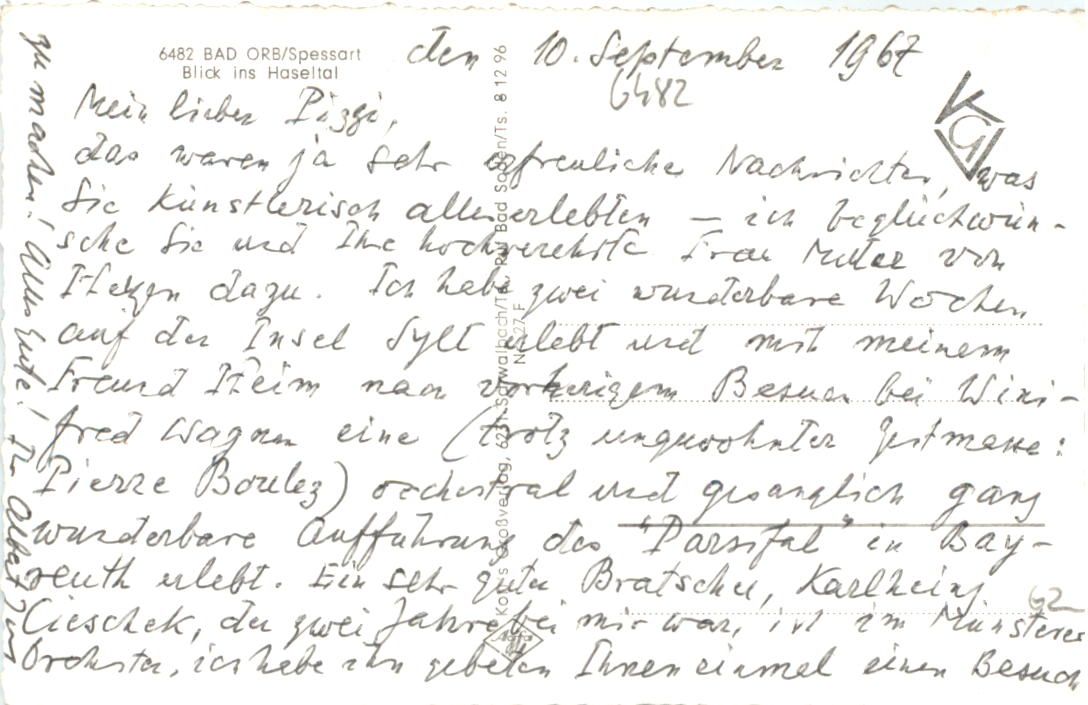 6482 BAD ORB/Spessart
Blick ins Haseltal
den 10. September 1967
6482
Mein lieber Pizzi,
das waren ja sehr erfreuliche Nachrichten, was
Sie künstlerisch alles erlebten – ich beglückwün-
sche Sie und Ihre hochverehrte Frau Mutter von
Herzen dazu. Ich habe zwei wunderbare Wochen
auf der Insel Sylt erlebt und mit meinem
Freund Heim nach vorherigem Besuch bei Wini-
fred Wagner eine (trotz ungewohnter Zeitmasse:
Pierre Boulez) orchestral und gesanglich ganz
wunderbare Aufführung des "Parsifal" in Bay-
reuth erlebt. Ein sehr guter Bratscher, Karlheinz
Cieschek, der zwei Jahre bei mir war, ist im Münsterer
Orchester, ich habe ihn gebeten Ihnen einmal einen Besuch
zu machen! Alles Gute! Ihr
62
Nr. 27 F
8 12 96
KG